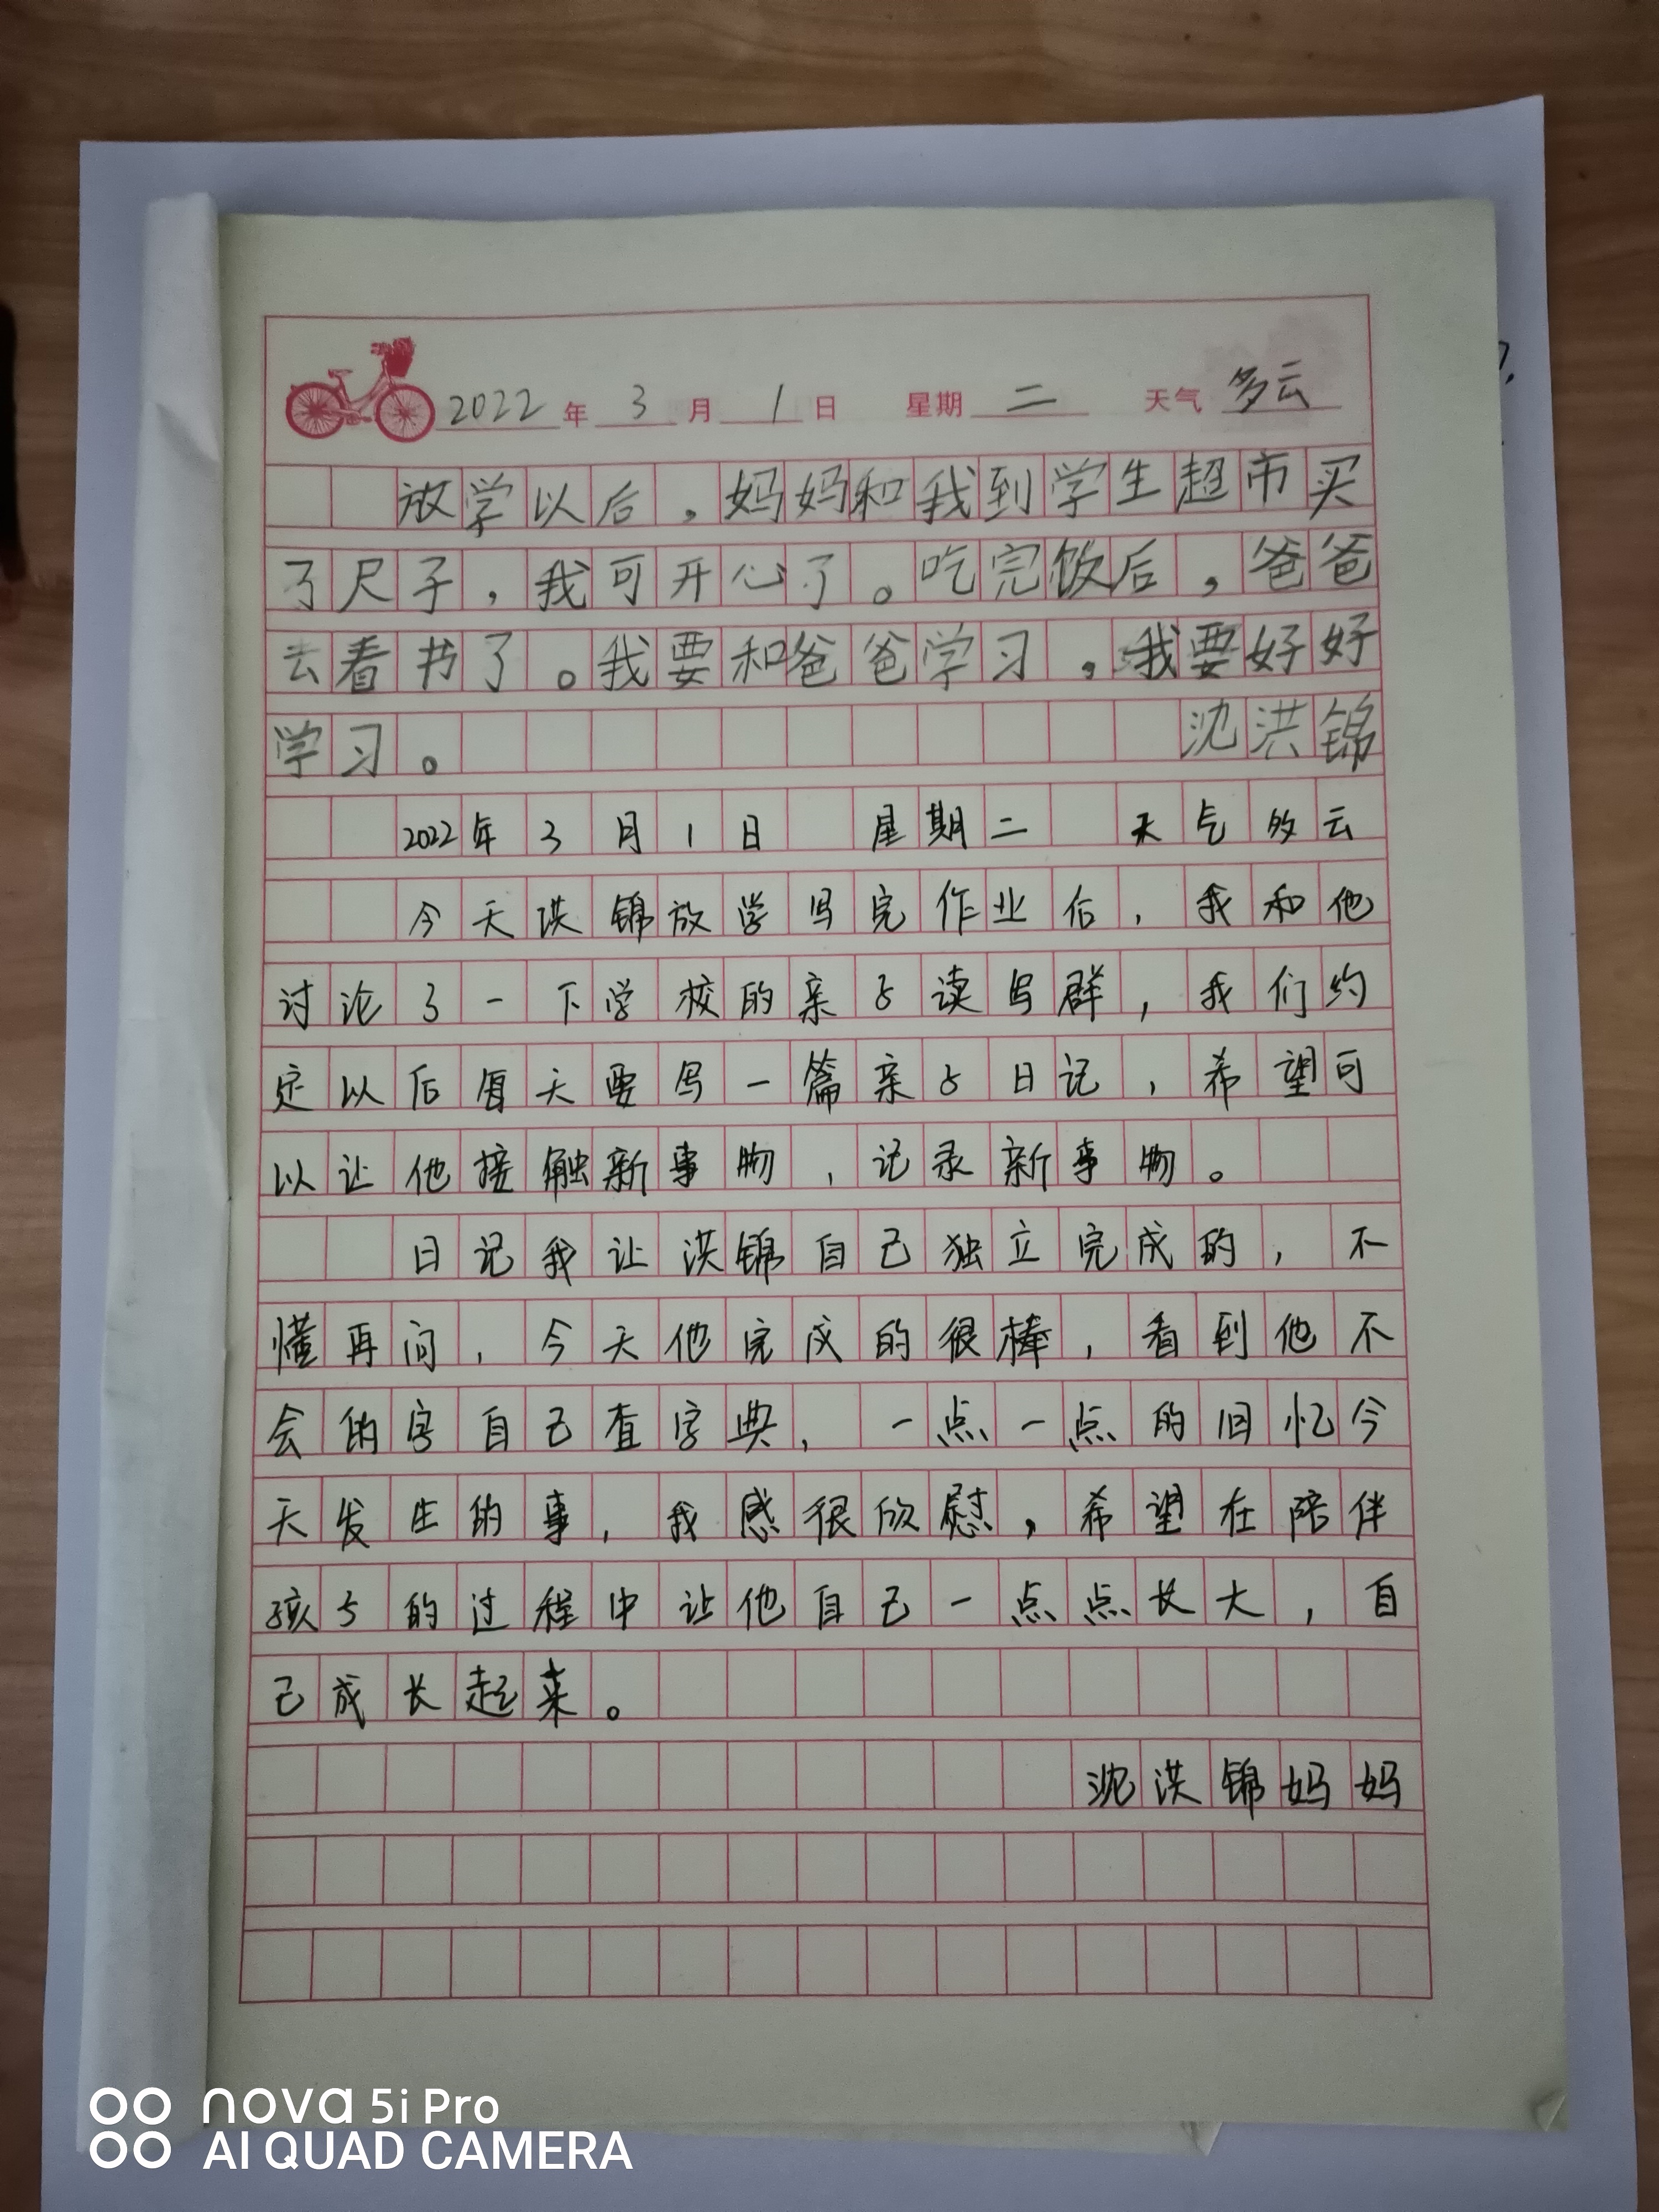 2022年3月1日 星期二 天气多云
放学以后，妈妈和我到学生超市买
了尺子，我可开心了。吃完饭后，爸爸
去看书了。我要和爸爸学习，我要好好
学习。 沈洪锦
2022年3月1日 星期二 天气多云
今天洪锦放学写完作业后，我和他
讨论了一下学校的亲子读写群，我们约
定以后每天要写一篇亲子日记，希望可
以让他接触新事物，记录新事物。
日记我让洪锦自己独立完成的，不
懂再问，今天他完成的很棒，看到他不
会的字自己查字典，一点一点的回忆今
天发生的事，我感很欣慰，希望在陪伴
孩子的过程中让他自己一点点长大，自
己成长起来。
沈洪锦妈妈
nova 5i Pro
AI QUAD CAMERA